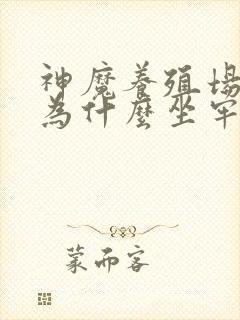 神魔養殖場
為什麼坐牢
蒙而客